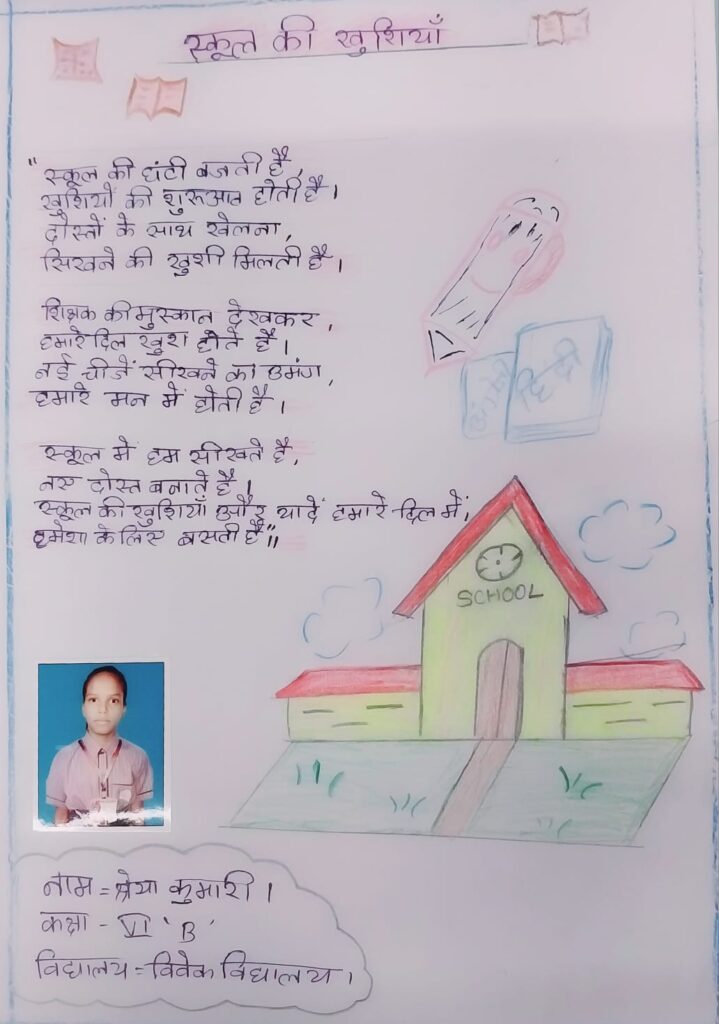 स्कूल की खुशियाँ
"स्कूल की घंटी बजती है,
खुशियों की शुरुआत होती है।
दोस्तों के साथ खेलना,
सिखने की खुशी मिलती है।
शिक्षक की मुस्कान देखकर,
हमारे दिल खुश होते है।
नई चीजें सीखने का उमंग,
हमारे मन में होती है।
स्कूल में हम सीखते है,
नए दोस्त बनाते है।
स्कूल की खुशियाँ और यादें हमारे दिल में,
हमेशा के लिए बसती है"।।
हिंदी
SCHOOL
नाम = श्रेया कुमारी।
कक्षा - VI 'B'
विद्यालय = विवेक विद्यालय।